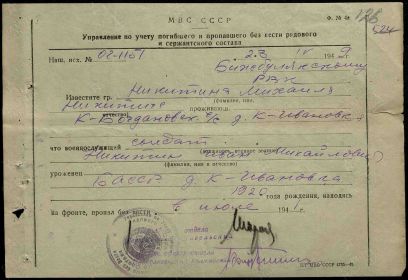 МВС СССР
Ф. № 4к
Управление по учету погибшего и пропавшего без вести рядового
и сержантского состава
Наш. исх. № 02-1151
23 IV 1949
Бижбулякскому
РВК
Известите гр. Никитина Михаила
(фамилия, имя,
Никитича
проживающ.
отчество)
К-Богдановск. с/с д. К-Ивановка
что военнослужащий солдат
(воинское звание)
Никитин Иван Михайлович
(фамилия, имя и отчество)
уроженец БАССР д. К-Ивановка
1920 года рождения, находясь
на фронте, пропал без вести
в июле 1941
отдела